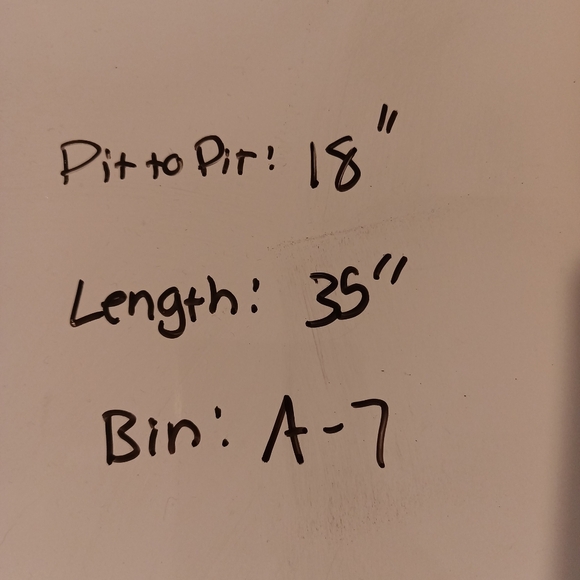 Pit to Pit: 18"
Length: 35"
Bin: A-7